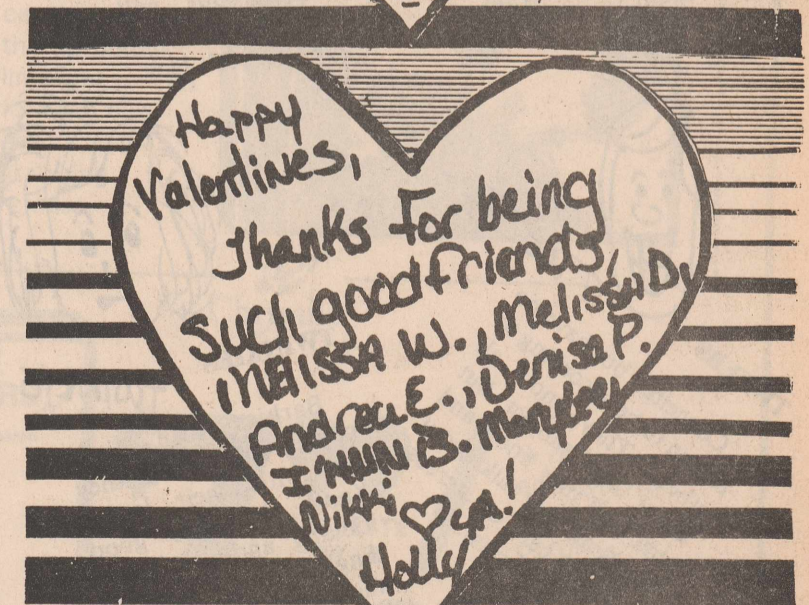 Happy
Valentines,
Thanks For being
such good friends,
MElISSA W., Melissa D,
Andrea E., Denise P.
I'NUN B. Marybeg
Nikki ♡ yA!
Holly